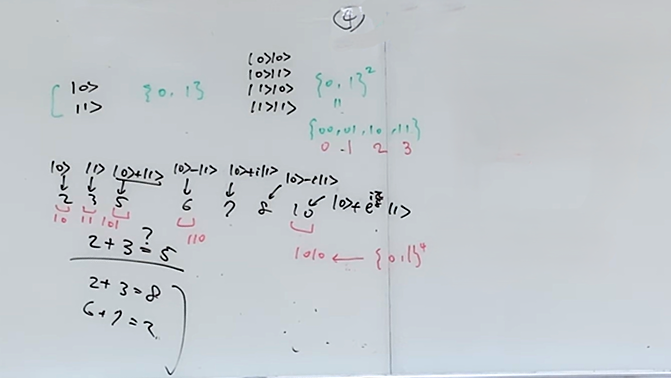 4
|0>
|1>
{0, 1}
|0>|0>
|0>|1>
|1>|0>
|1>|1>
{0, 1}²
=
{00, 01, 10, 11}
0 1 2 3
|0> |1> |0>+|1> |0>-|1> |0>+i|1> |0>-i|1>
2 3 5 6 7 8 10 |0>+e |1>
10 11 101 110
1010 ← {0,1}⁴
2+3=5
?
2+3=8
6+7=2